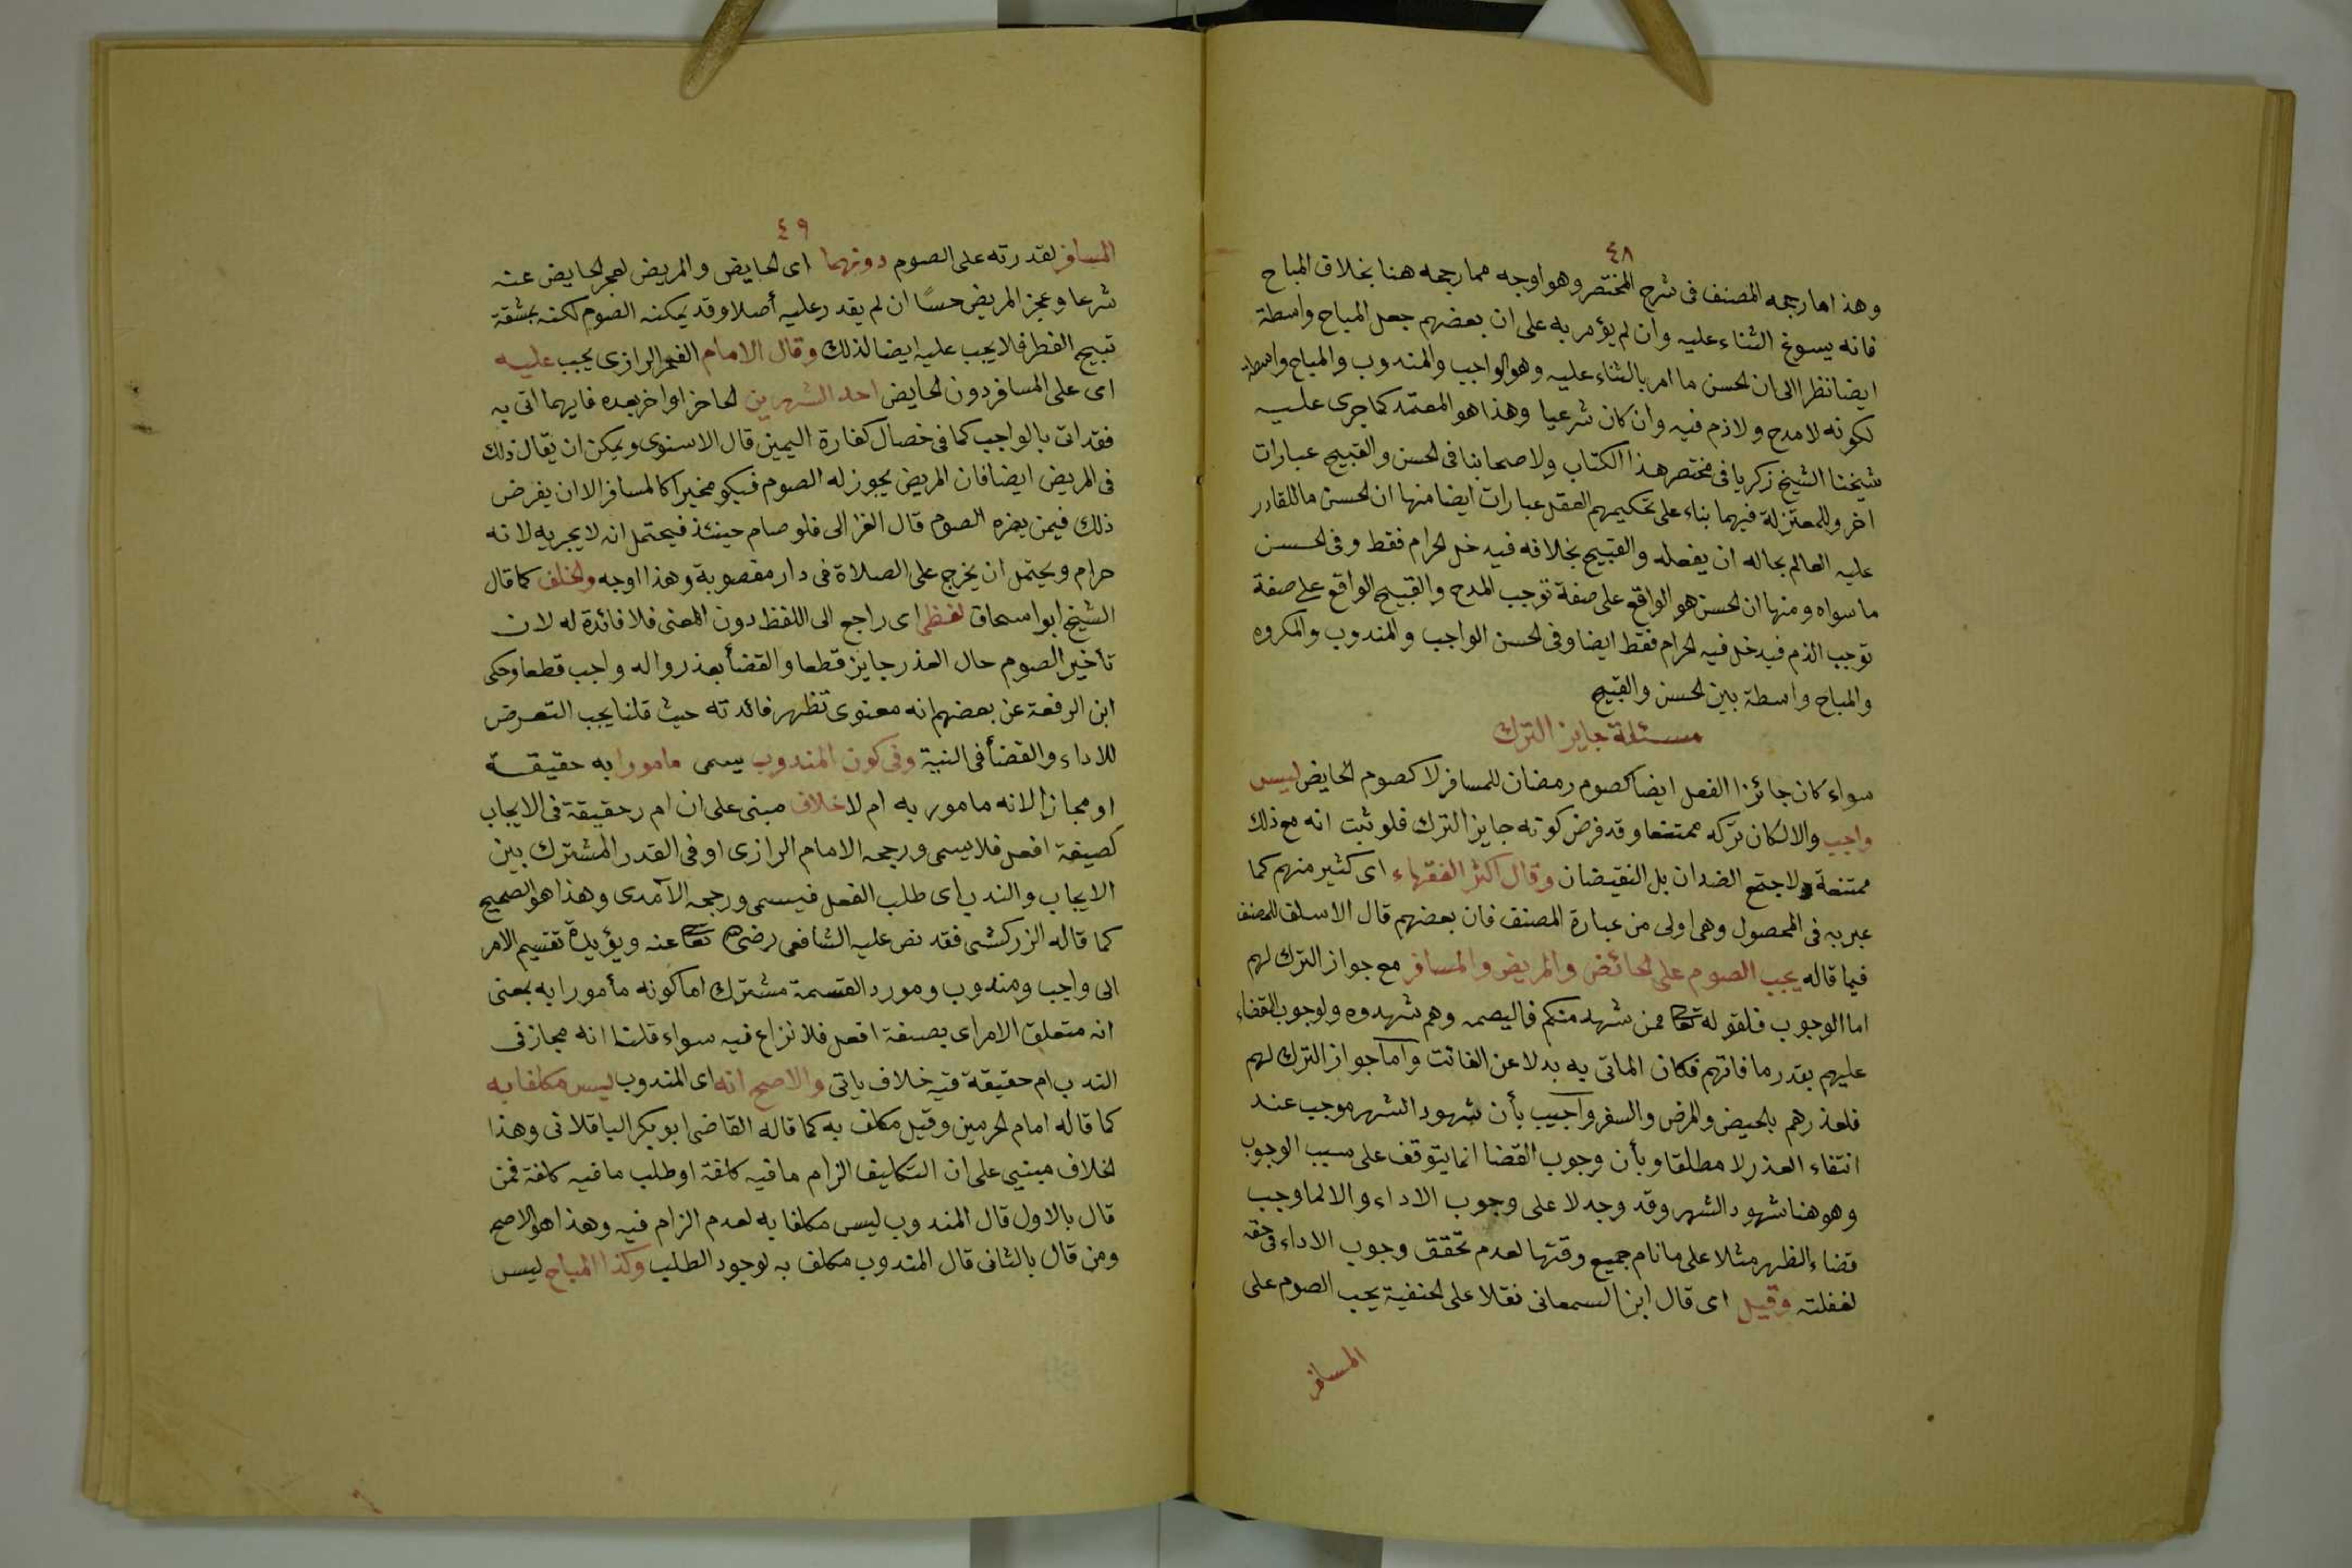 ٤٨
وهذا ما رجحه المصنف فى شرح المختصر وهو اوجه مما رجحه هنا بخلاف المباح
فانه يسوغ الثناء عليه وان لم يؤمر به على ان بعضهم جعل المباح واسطة
ايضا نظرا الى ان الحسن ما امر بالثناء عليه وهو الواجب والمندوب والمباح واسطة
لكونه لا مدح ولا ذم فيه وان كان شرعيا وهذا هو المعتمد كما جرى عليه
شيخنا الشيخ زكريا فى مختصر هذا الكتاب ولاصحابنا فى الحسن والقبيح عبارات
اخر وللمعتزلة فيهما بناء على تحكيمهم العقل عبارات ايضا منها ان الحسن ما للقادر
عليه العالم بحاله ان يفعله والقبيح بخلافه فيدخل الحرام فقط وفى الحسن
ما سواه ومنها ان الحسن هو الواقع على صفة توجب المدح والقبيح الواقع على صفة
توجب الذم فيدخل فيه الحرام فقط ايضا وفى الحسن الواجب والمندوب والمكروه
والمباح واسطة بين الحسن والقبيح
مسئلة جايز الترك
سواء كان جائزا الفعل ايضا كصوم رمضان للمسافر لا كصوم الحايض ليس
واجب والا لكان تركه ممتنعا وقد فرض كونه جايز الترك فلو ثبت انه مع ذلك
ممتنعة ولاجتمع الضدان بل النقيضان وقال اكثر الفقهاء اى كثير منهم كما
عبر به فى المحصول وهى اولى من عبارة المصنف فان بعضهم قال الاسلف للمصنف
فيما قاله يجب الصوم على الحائض والمريض والمسافر مع جواز الترك لهم
اما الوجوب فلقوله تعا فمن شهد منكم فاليصمه وهم شهدوه ولوجوب القضاء
عليهم بقدر ما فاتهم فكان الماتى به بدلا عن الفائت واما جواز الترك لهم
فلعذرهم بالحيض والمرض والسفر واجيب بأن شهود الشهر موجب عند
انتفاء العذر لا مطلقا وبأن وجوب القضا انما يتوقف على سبب الوجوب
وهو هنا شهود الشهر وقد وجد لا على وجوب الاداء والا لما وجب
قضاء الظهر مثلا على ما نام جميع وقتها لعدم تحقق وجوب الاداء فى حقه
لغفلته وقيل اى قال ابن السمعانى نقلا على الحنفية يجب الصوم على
المسافر
٤٩
المسافر لقدرته على الصوم دونهما اى الحايض والمريض لعجز الحايض عنه
شرعا وعجز المريض حسًا ان لم يقدر عليه أصلا وقد يمكنه الصوم لكنه بمشقة
تبيح الفطر فلا يجب عليه ايضا لذلك وقال الامام الفخر الرازى يجب عليه
اى على المسافر دون الحايض احد الشهرين الحاضر او اخر بعده فايهما اتى به
فقد اتى بالواجب كما فى خصال كفارة اليمين قال الاسنوى ويمكن ان يقال ذلك
فى المريض ايضا فان المريض يجوز له الصوم فيكو مخيرا كالمسافر الا ان يفرض
ذلك فيمن يضره الصوم قال الغزالى فلو صام حينئذ فيحتمل انه لا يجزيه لانه
حرام ويحتمل ان يخرج على الصلاة فى دار مغصوبة وهذا اوجه والخلف كما قال
الشيخ ابو اسحاق لفظى اى راجع الى اللفظ دون المعنى فلا فائدة له لان
تأخير الصوم حال العذر جايز قطعا والقضأ بعد زواله واجب قطعا وحكى
ابن الرفعة عن بعضهم انه معنوى تظهر فائدته حيث قلنا يجب التعرض
للاداء والقضأ فى النية وفى كون المندوب يسمى مامورا به حقيقة
او مجازا لانه مامور به ام لا خلاف مبنى على ان ام ر حقيقة فى الايجاب
كصيغة افعل فلا يسمى ورجحه الامام الرازى او فى القدر المشترك بين
الايجاب والندب اى طلب الفعل فيسمى ورجحه الآمدى وهذا هو الصحيح
كما قاله الزركشى فقد نص عليه الشافعى رضى تعا عنه ويؤيدة تقسيم الامر
الى واجب ومندوب ومورد القسمة مشترك اما كونه مأمورا به بمعنى
انه متعلق الامر اى بصغة افعل فلا نزاع فيه سواء قلنا انه مجاز فى
الندب ام حقيقة فيه خلاف ياتى والاصح انه اى المندوب ليس مكلفا به
كما قاله امام الحرمين وقيل مكلف به كما قاله القاضى ابو بكر الباقلانى وهذا
الخلاف مبنيي على ان التكليف الزام ما فيه كلفة او طلب ما فيه كلفة فمن
قال بالاول قال المندوب ليس مكلفا به لعدم الزام فيه وهذا هو الاصح
ومن قال بالثانى قال المندوب مكلف به لوجود الطلب وكذا المباح ليس